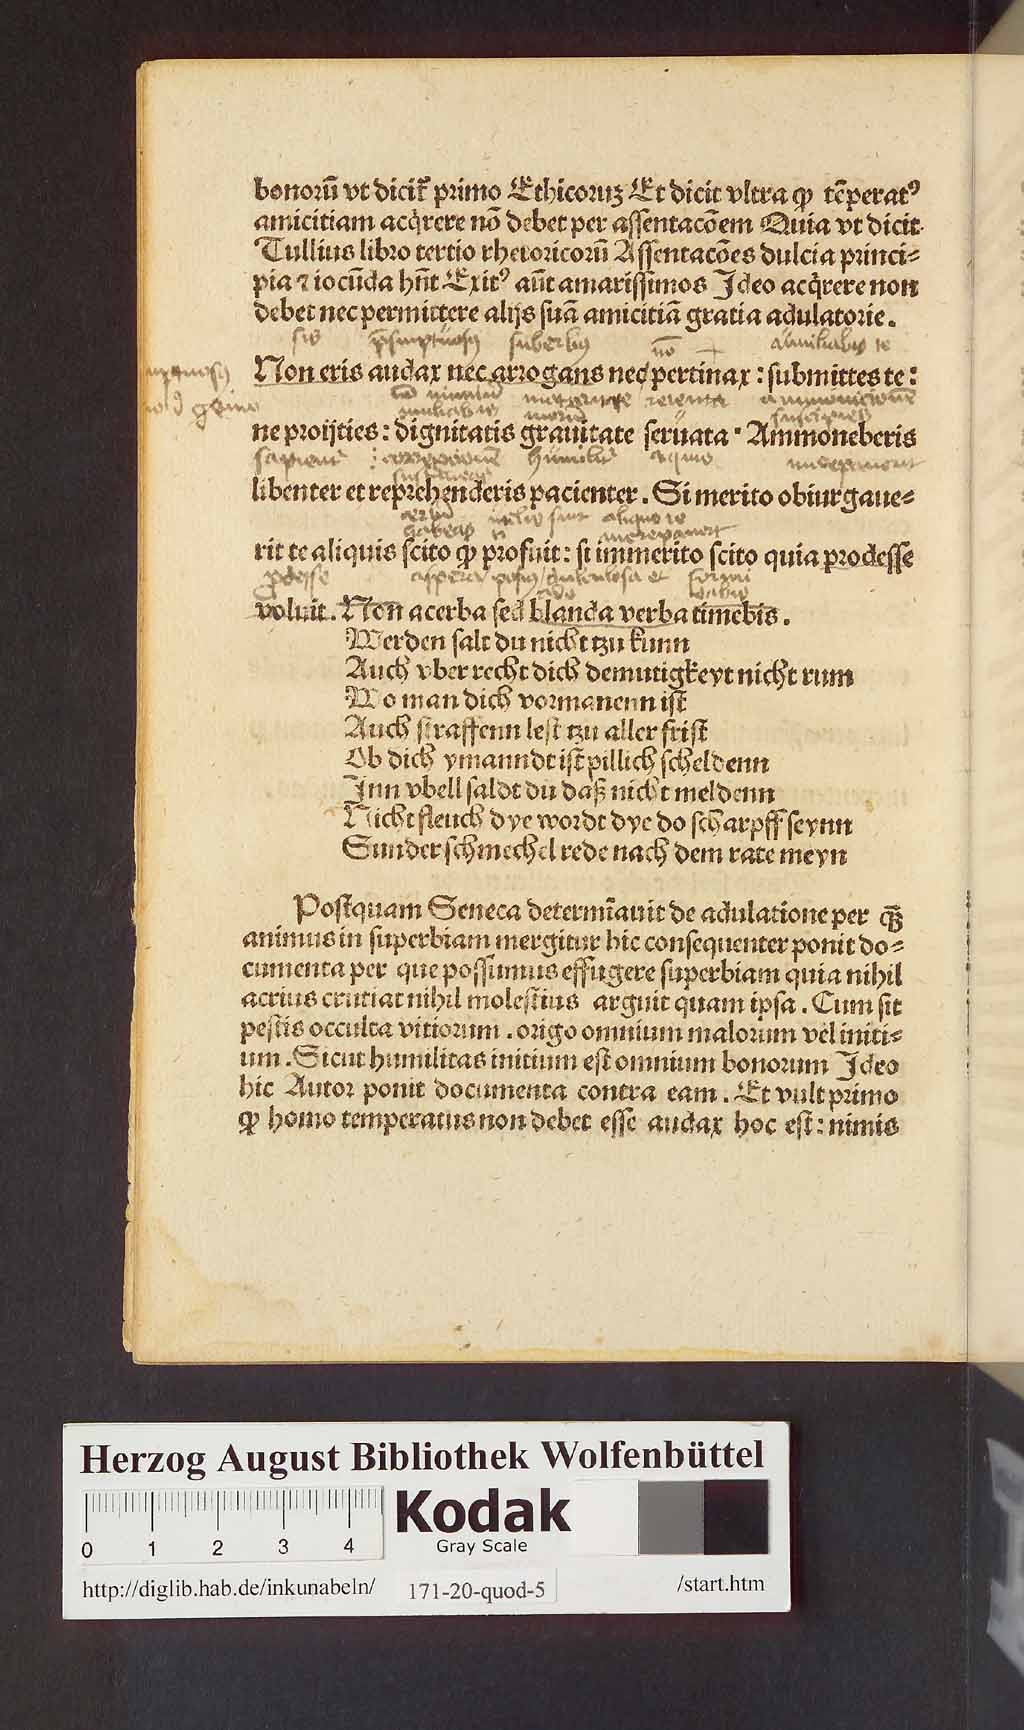 bonorū vt dicit᷑ primo Ethicoruꝫ Et dicit vltra ꝙ tēperatꝰ
amicitiam acq̇rere nō debet per assentacōem Quia vt dicit
Tullius libro tertio rhetoricorū Assentacōes dulcia princi⸗
pia ⁊ iocūda hn̄t Exitꝰ aūt amarissimos Ideo acq̇rere non
debet nec permittere alijs suā amicitiā gratia adulatorie.
sis suberbus
nō humiliabis te
Non eris audax nec arrogans nec pertinax: submittes te:
ne proijties: dignitatis grauitate seruata. Ammoneberis
libenter et reprehenderis pacienter. Si merito obiurgaue⸗
rit te aliquis scito ꝙ profuit: si immerito scito quia prodesse
voluit. Non acerba sed blanda verba timebis.
Werden salt du nicht tzu kunn
Auch vber recht dich demutigkeyt nicht rum
Wo man dich vormanenn ist
Auch straffenn lest tzu aller frist
Ob dich ymanndt ist pillich scheldenn
Inn vbell saldt du daß nicht meldenn
Nicht fleuch dye wordt dye do scharpff seynn
Sunder schmechel rede nach dem rate meyn
Postquam Seneca determīauit de adulatione per quā
animus in superbiam mergitur hic consequenter ponit do⸗
cumenta per que possumus effugere superbiam quia nihil
acrius crutiat nihil molestius arguit quam ipsa. Cum sit
pestis occulta vitiorum. origo omnium malorum vel initi⸗
um. Sicut humilitas initium est omnium bonorum Ideo
hic Autor ponit documenta contra eam. Et vult primo
ꝙ homo temperatus non debet esse audax hoc est: nimis
Herzog August Bibliothek Wolfenbüttel
0 1 2 3 4
Kodak
Gray Scale
http://diglib.hab.de/inkunabeln/ 171-20-quod-5 /start.htm